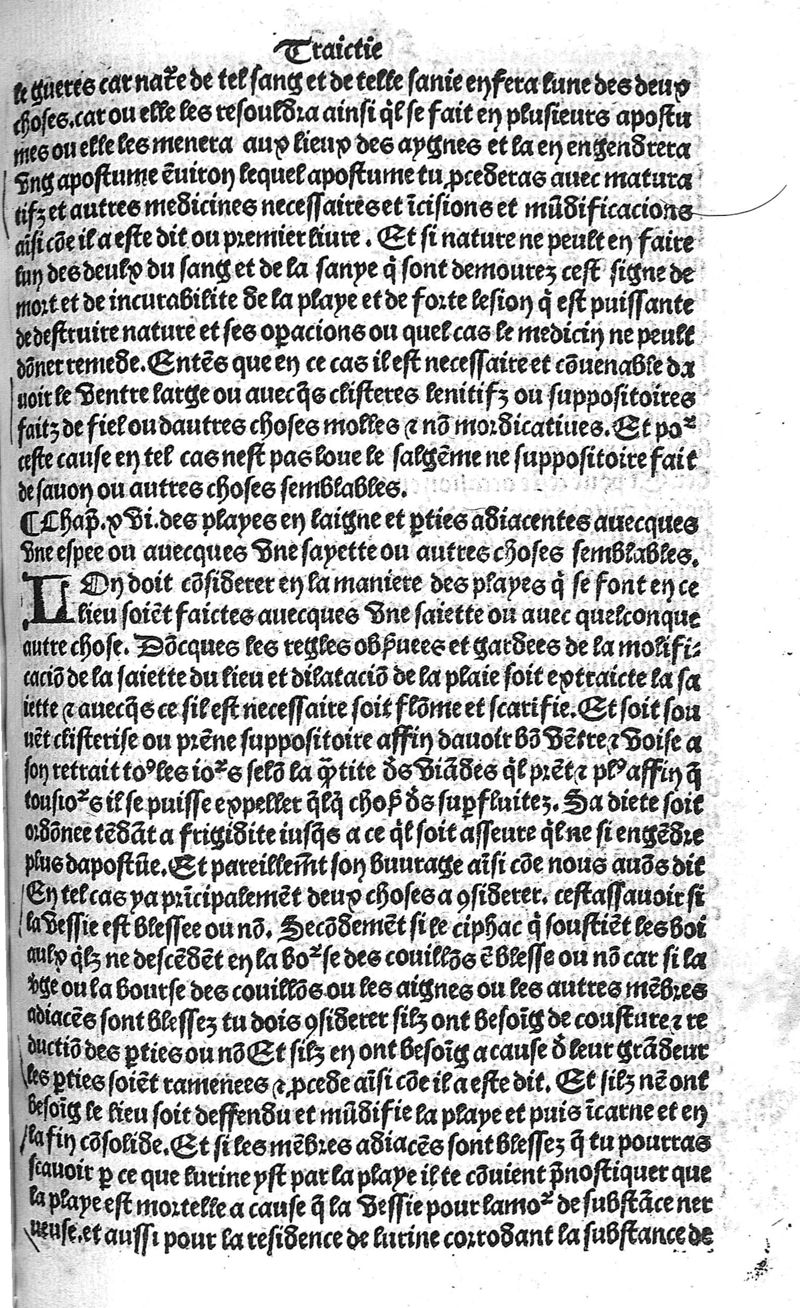 Traictie
le gueres car nat̃e de tel sang et de telle sanie en fera lune des deux
choses. car ou elle les resouldra ainsi q̃l se fait en plusieurs apostu
mes ou elle les menera aux lieux des aygnes et la en engendrera
vng apostume ẽuiron lequel apostume tu ꝓcederas auec matura
tifz et autres medicines necessaires et ĩcisions et mũdificacions
aĩsi cõe il a este dit ou premier liure. Et si nature ne peult en faire
lun des deulx du sang et de la sanye q̃ sont demourez cest signe de
mort et de incurabilite de la playe et de forte lesion q̃ est puissante
de destruire nature et ses oꝑacions ou quel cas le medicin ne peult
dõner remede. Entẽs que en ce cas il est necessaire et cõuenable da
uoir le ventre large ou auecq̃s clisteres lenitifz ou suppositoires
faitz de fiel ou dautres choses molles ⁊ nõ mordicatiues. Et poꝛ᷑
ceste cause en tel cas nest pas loue le salgẽme ne suppositoire fait
de sauon ou autres choses semblables.
¶Chap̃. xvi. des playes en laigne et ꝑties adiacentes auecques
vne espee ou auecques vne sayette ou autres choses semblables.
LOn doit cõsiderer en la maniere des playes q̃ se font en ce
lieu soiẽt faictes auecques vne saiette ou auec quelconque
autre chose. Dõcques les regles obs̃uees et gardees de la molifi⸗
caciõ de la saiette du lieu et dilataciõ de la plaie soit extraicte la sa
iette ⁊ auecq̃s ce sil est necessaire soit flõme et scarifie. Et soit sou
uẽt clisterise ou prẽne suppositoire affin dauoir bõ vẽtre ⁊ voise a
son retrait toꝰ les ioꝛ᷑s selõ la q̃ntite d̃s viãdes q̃l prẽt ⁊ plꝰ affin q̃
tousioꝛ᷑s il se puisse expeller q̃lq̃ chos̃ d̃s suꝑfluitez. Sa diete soit
ordõnee tẽdãt a frigidite iusq̃s a ce q̃l soit asseure q̃l ne si engẽdre
plus dapostũe. Et pareillem̃t son buurage aĩsi cõe nous auõs dit
En tel cas ya prĩcipalemẽt deux choses a ꝯsiderer. cestassauoir si
la vessie est blessee ou nõ. Secõdemẽt si le ciphac q̃ soustiẽt les boi
aulx q̃lz ne descẽdẽt en la boꝛ᷑se des couillõs ẽ blesse ou nõ car si la
v̾ge ou la bourse des couillõs ou les aignes ou les autres mẽbres
adiacẽs sont blessez tu dois ꝯsiderer silz ont besoĩg de cousture ⁊ re
ductiõ des ꝑties ou nõ Et silz en ont besoĩg a cause d̃ leur grãdeur
les ꝑties soiẽt ramenees ⁊ ꝓcede aĩsi cõe il a este dit. Et silz nẽ ont
besoĩg le lieu soit deffendu et mũdifie la playe et puis ĩcarne et en
la fin cõsolide. Et si les mẽbres adiacẽs sont blessez q̃ tu pourras
scauoir ꝑ ce que lurine yst par la playe il te cõuient p̃nostiquer que
la playe est mortelle a cause q̃ la vessie pour lamoꝛ᷑ de substãce ner
ueuse. et aussi pour la residence de lurine corrodant la substance de